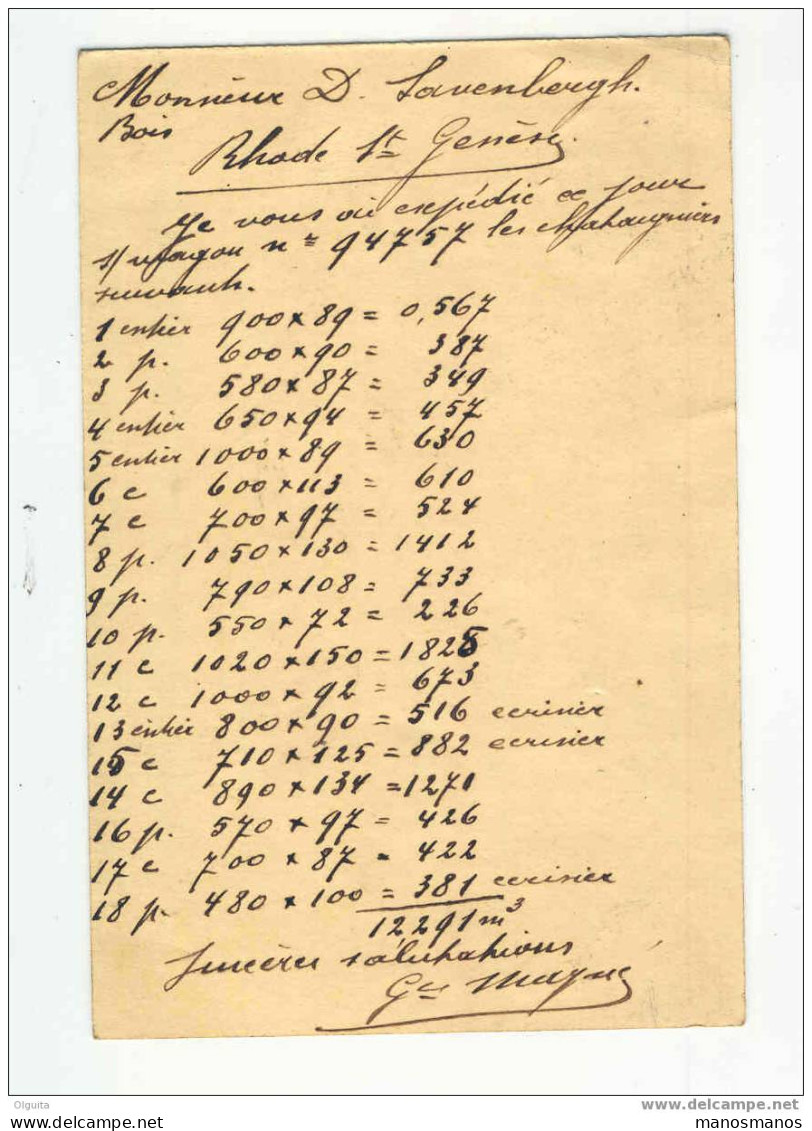 Monsieur D. Lavenbergh.
Bois
Rhode St Genèse.
Je vous ai expédié ce jour
s/ wagon n° 94757 les chataigniers
suivants.
1 entier 900 x 89 = 0,567
2 p. 600 x 90 = 387
3 p. 580 x 87 = 349
4 entier 650 x 94 = 457
5 entier 1000 x 89 = 630
6 c 600 x 113 = 610
7 c 700 x 97 = 524
8 p. 1050 x 130 = 1412
9 p. 790 x 108 = 733
10 p. 550 x 72 = 226
11 c 1020 x 150 = 1825
12 c 1000 x 92 = 673
13 entier 800 x 90 = 516 cerisier
15 c 710 x 125 = 882 cerisier
14 c 890 x 134 = 1271
16 p. 570 x 97 = 426
17 c 700 x 87 = 422
18 p. 480 x 100 = 381 cerisier
12291 m3
Sincères salutations
Olguita
delcampe.net
manosmanos